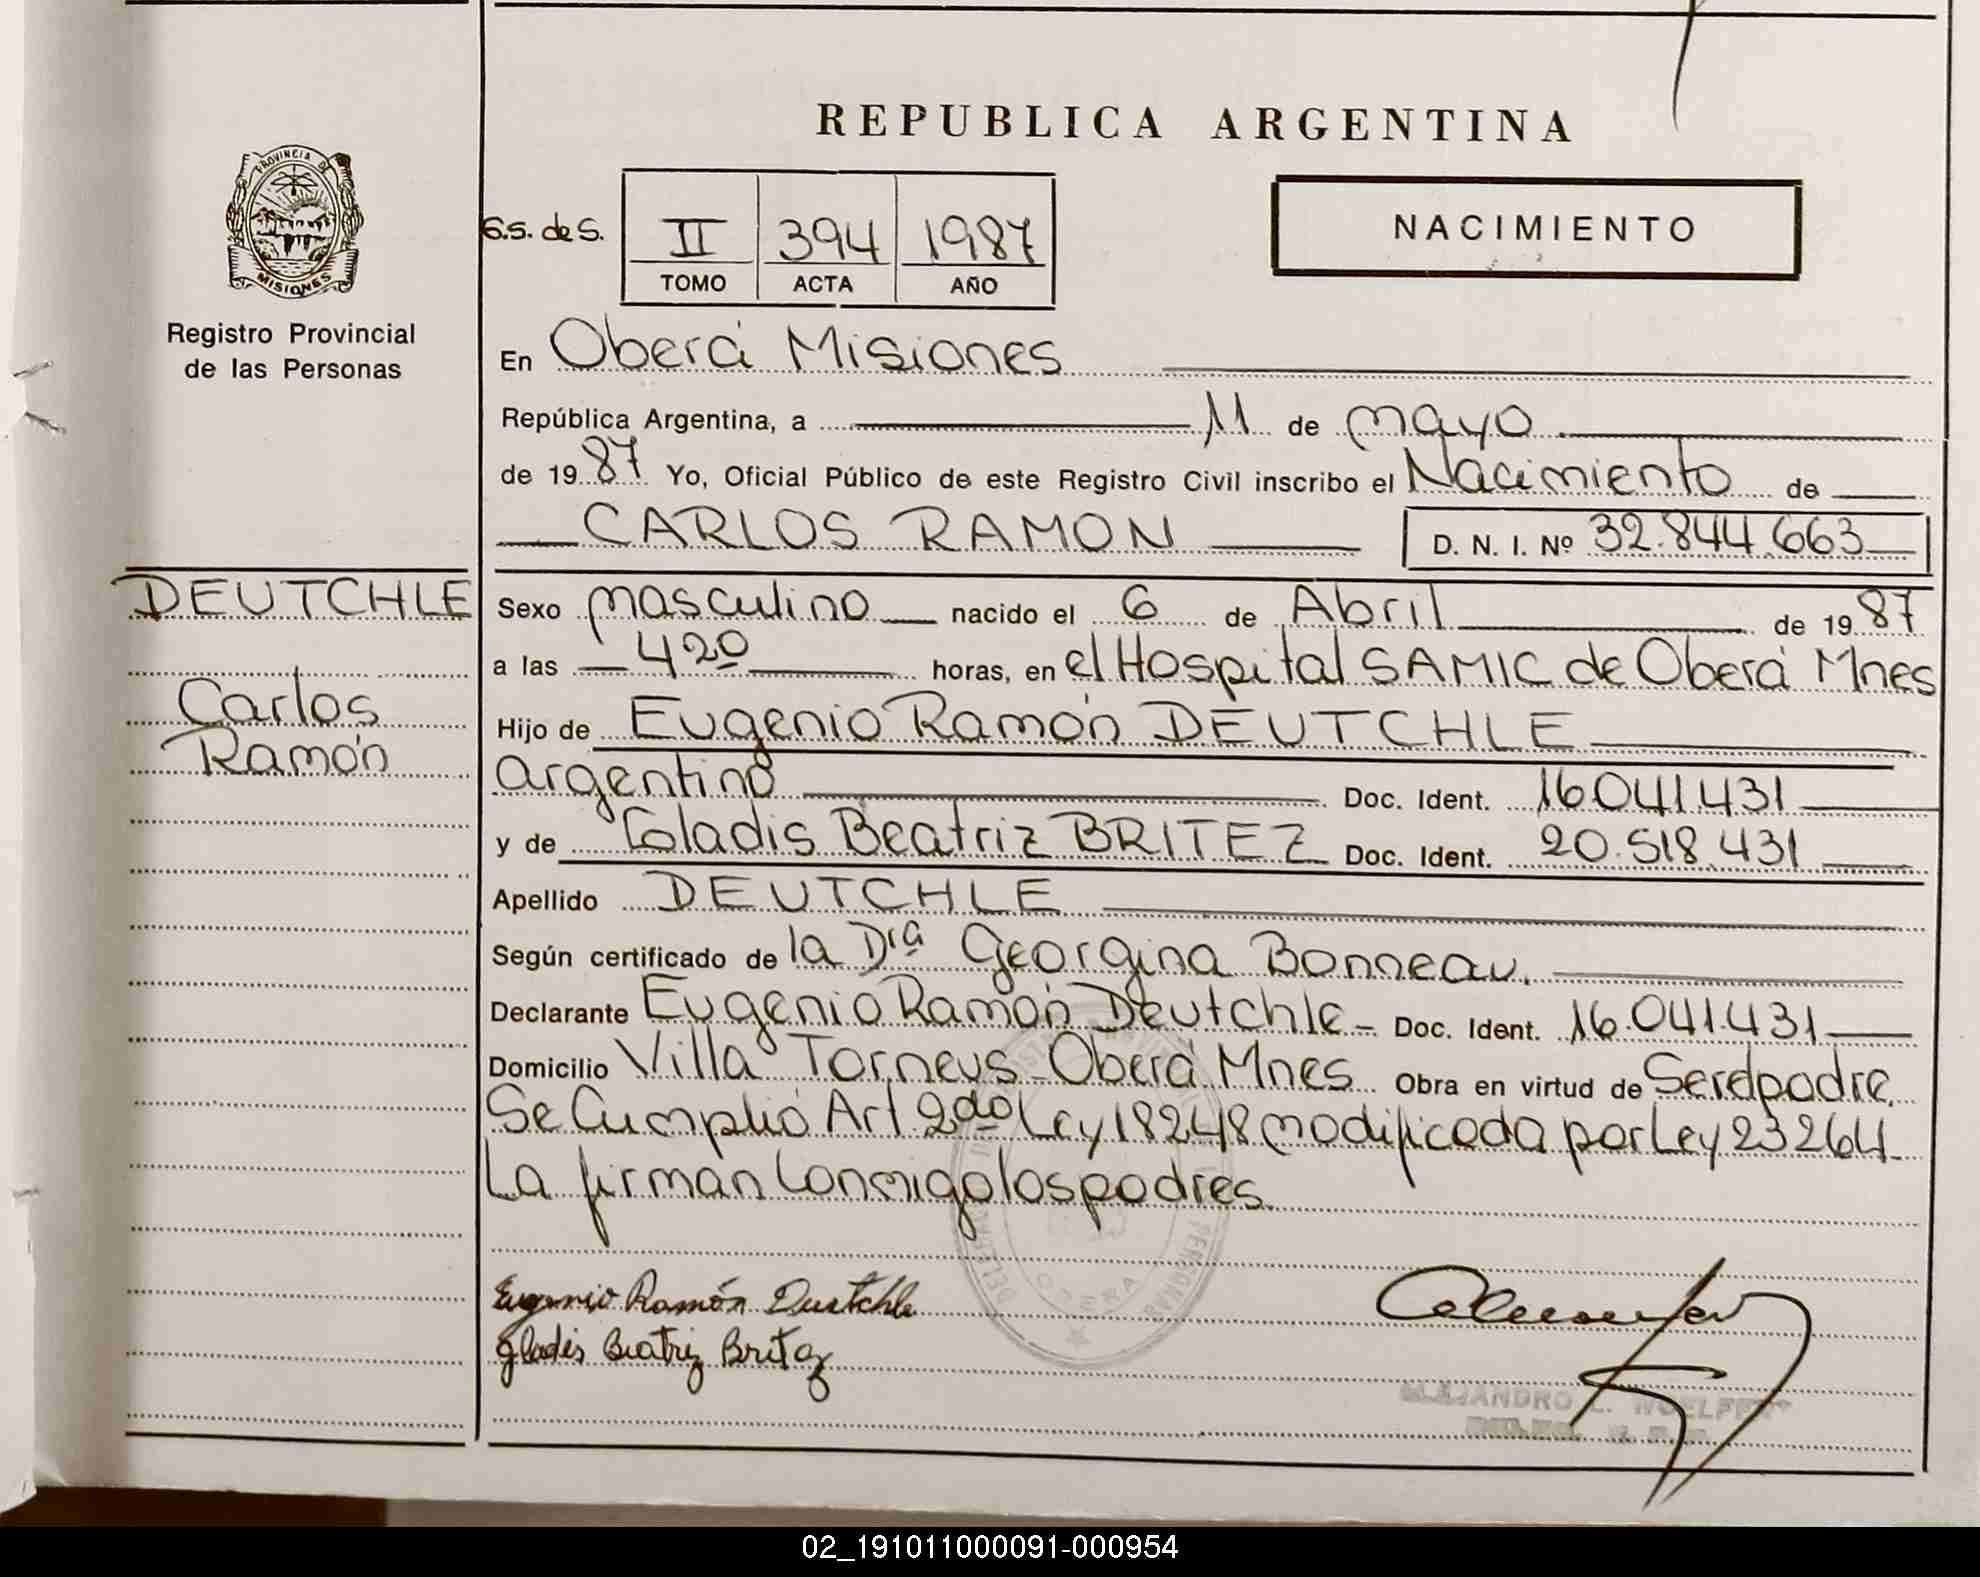 REPUBLICA ARGENTINA
PROVINCIA DE
MISIONES
Registro Provincial
de las Personas
S.S. de S.
II 394 1987
TOMO ACTA AÑO
NACIMIENTO
En Oberá Misiones
República Argentina, a 11 de mayo
de 1987 Yo, Oficial Público de este Registro Civil inscribo el Nacimiento de
CARLOS RAMON D. N. I. Nº 32.844.663
DEUTCHLE
Carlos
Ramón
Sexo masculino nacido el 6 de Abril de 1987
a las 4 20 horas, en el Hospital SAMIC de Oberá Mnes
Hijo de Eugenio Ramón DEUTCHLE
argentino Doc. Ident. 16.041.431
y de Gladis Beatriz BRITEZ Doc. Ident. 20.518.431
Apellido DEUTCHLE
Según certificado de la Dra Georgina Bonneau.
Declarante Eugenio Ramón Deutchle - Doc. Ident. 16.041.431
Domicilio Villa Torneus - Oberá Mnes Obra en virtud de Serelpadre.
Se Cumplió Art 2do Ley 18248 modificada por Ley 23264.
La firman Conmigo los padres.
Eugenio Ramón Deutchle
Gladis Beatriz Britez
OBERA
ALEJANDRO L.
02_191011000091-000954